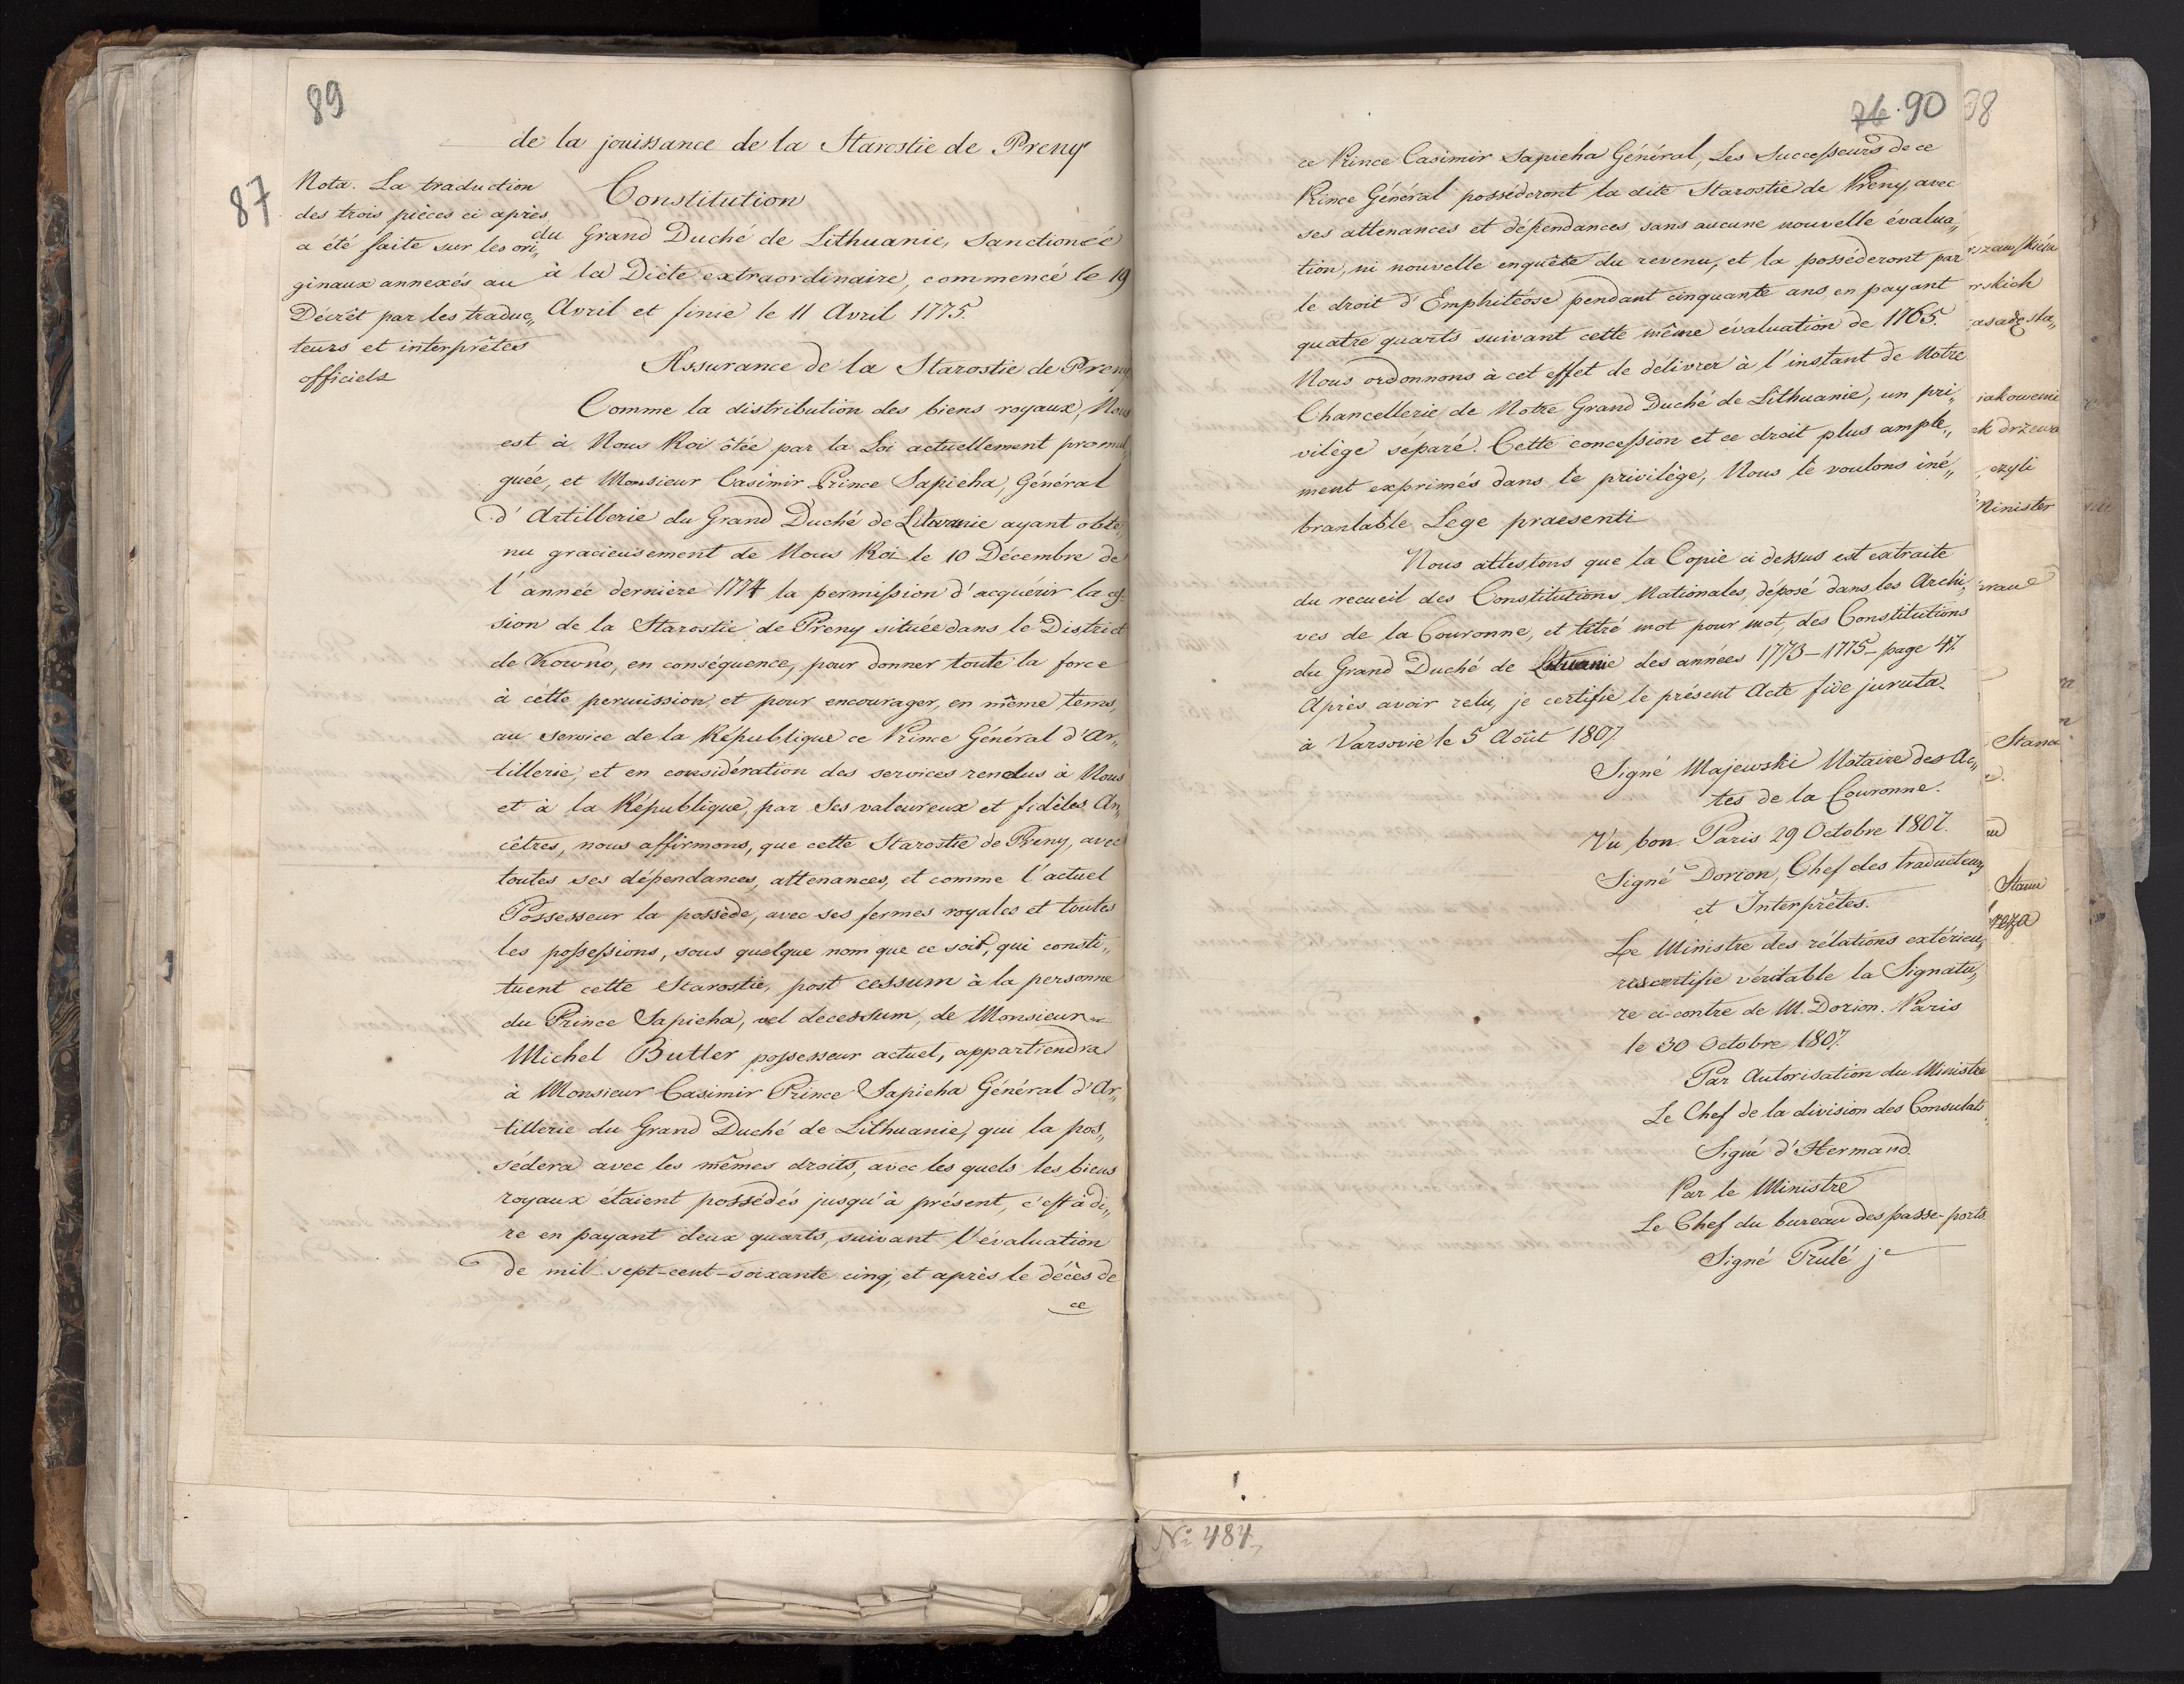 89
de la jouissance de la Starostie de Preny
87
Nota. La traduction
des trois pièces ci après
a été faite sur les ori„
ginaux annexés au
Décrèt par les traduc„
teurs et interprêtes
officiels
Constitution
du Grand Duché de Lithuanie, Sanctionée
à la Diète extraordinaire, commencé le 19
Avril et finie le 11 Avril 1775.
Assurance de la Starostie de Preny
Comme la distribution des biens royaux, Nous
est à Nous Roi ôtée par la Loi actuellement promul„
guée, et Monsieur Casimir Prince Sapieha, Général
d'Artillerie du Grand Duché de Lituanie ayant obte„
nu gracieusement de Nous Roi le 10 Décembre de
l'année dernière 1774 la permission d'acquérir la ces„
sion de la Starostie de Preny située dans le District
de Kowno, en conséquence, pour donner toute la force
à cette permission et pour encourager, en même tems,
au service de la République ce Prince Général d'Ar„
tillerie, et en considération des services rendus à Nous
et à la République, par Ses valeureux et fidèles An„
cêtres, nous affirmons, que cette Starostie de Preny, avec
toutes ses dépendances, attenances, et comme l'actuel
Possesseur la possède, avec ses fermes royales et toutes
les possessions, sous quelque nom que ce soit, qui consti„
tuent cette Starostie, post cessum à la personne
du Prince Sapieha, vel decessum, de Monsieur
Michel Butler possesseur actuel, appartiendra
à Monsieur Casimir Prince Sapieha Général d'Ar„
tillerie du Grand Duché de Lithuanie, qui la pos„
sédera avec les mêmes droits, avec les quels les biens
royaux étaient possédés jusqu'à présent, c'est à di„
re en payant deux quarts, suivant l'évaluation
de mil sept-cent-soixante cinq, et après le décès de
ce
90
98
ce Prince Casimir Sapieha Général, Les Successeurs de ce
Prince Général posséderont la dite Starostie de Preny avec
ses attenances et dépendances, sans aucune nouvelle évalua„
tion, ni nouvelle enquête du revenu, et la posséderont par
le droit d'Emphitéose pendant cinquante ans en payant
quatre quarts suivant cette même évaluation de 1765.
Nous ordonnons à cet effet de délivrer à l'instant de Notre
Chancellerie de Notre Grand Duché de Lithuanie, un pri„
vilège séparé. Cette concession et ce droit plus ample„
ment exprimés dans le privilège, Nous le voulons iné„
branlable Lege praesenti
Nous attestons que la Copie ci dessus est extraite
du recueil des Constitutions Nationales, déposé dans les Archi„
ves de la Couronne, et titré mot pour mot, des Constitutions
du Grand Duché de Lituanie des années 1773-1775- page 47.
Après avoir relu, je certifie le présent Acte fide jurata.
à Varsovie le 5 Août 1807.
Signé Majewski Notaire des Ac„
tes de la Couronne.
Vu bon. Paris 29 Octobre 1807.
Signé Dorion, Chef des traducteurs
et Interprêtes.
Le Ministre des rélations extérieu„
res certifie véritable la Signatu„
re ci-contre de M. Dorion. Paris
le 30 Octobre 1807.
Par Autorisation du Ministre
Le Chef de la division des Consulats
Signé d'Hermand.
Par le Ministre
Le Chef du bureau des passe-ports.
Signé Prulé je
rskich
iakowemi
ek drzewa
czyli
Minister
Stan
N° 484